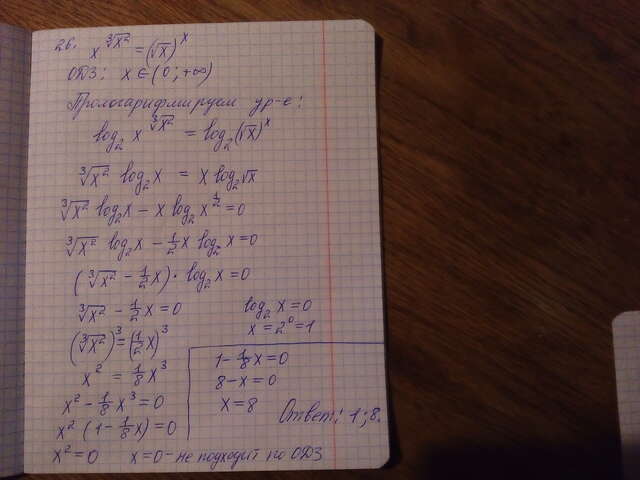 26. x^∛x² = (√x)^x
ОДЗ: x ∈ (0; +∞)
Прологарифмируем ур-е:
log₂ x^∛x² = log₂ (√x)^x
∛x² log₂ x = x log₂ √x
∛x² log₂ x − x log₂ x^½ = 0
∛x² log₂ x − ½ x log₂ x = 0
(∛x² − ½ x) · log₂ x = 0
∛x² − ½ x = 0
(∛x²)³ = (½ x)³
x² = ⅛ x³
x² − ⅛ x³ = 0
x² (1 − ⅛ x) = 0
x² = 0 x = 0 − не подходит по ОДЗ
log₂ x = 0
x = 2⁰ = 1
1 − ⅛ x = 0
8 − x = 0
x = 8
Ответ: 1; 8.